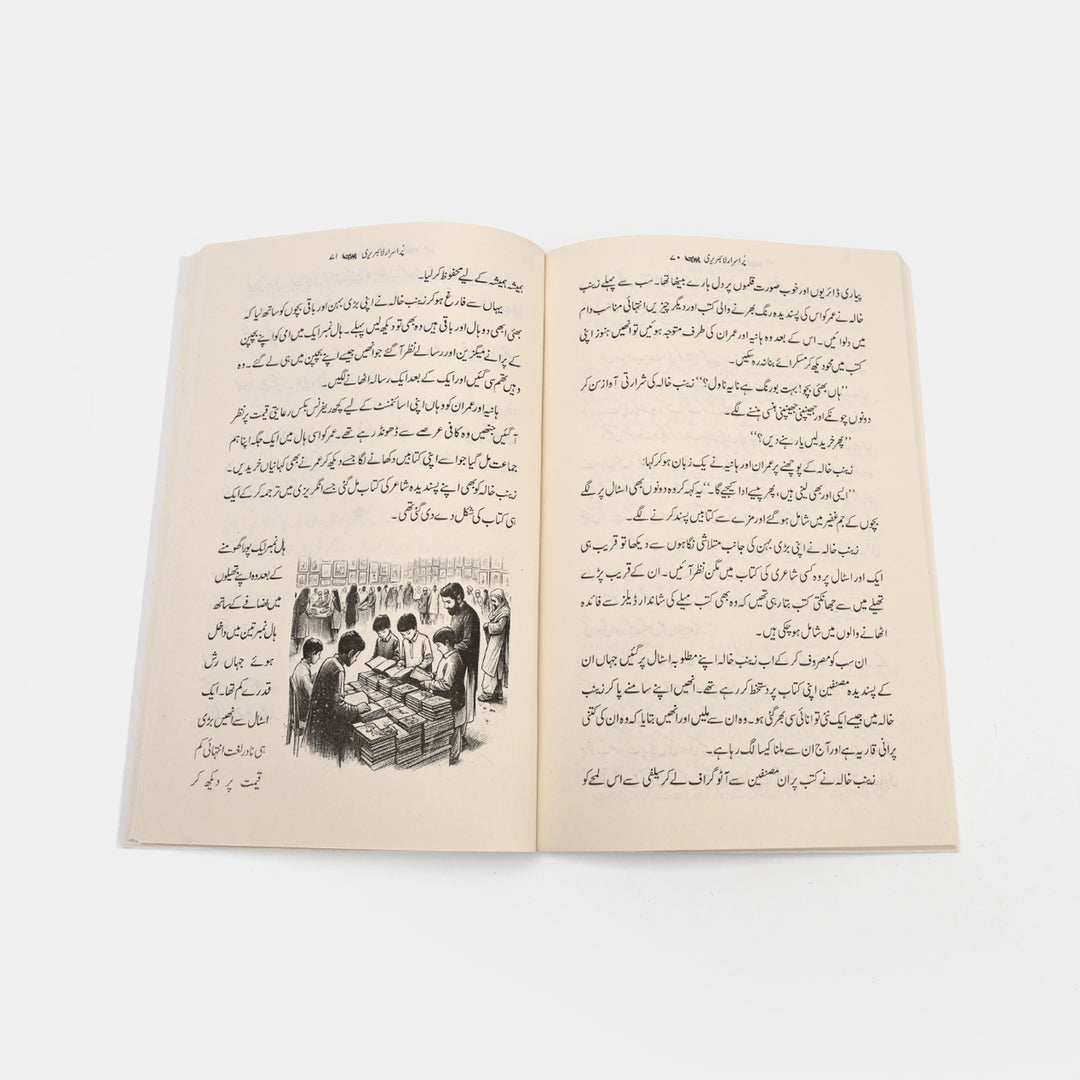 پُراسرار لائبریری ۷۰
پیاری ڈائریوں اور خوب صورت قلموں پر دل ہارے بیٹھا تھا۔ سب سے پہلے زینب
خالہ نے عمر کو اس کی پسندیدہ رنگ بھرنے والی کتب اور دیگر چیزیں انتہائی مناسب دام
میں دلوائیں۔ اس کے بعد وہ ہانیہ اور عمران کی طرف متوجہ ہوئیں تو انھیں ہنوز اپنی
کتب میں محو دیکھ کر مسکرائے بنا نہ رہ سکیں۔
”ہاں بھئی بچو! بہت بورنگ ہے نا یہ ناول؟“ زینب خالہ کی شرارتی آواز سن کر
دونوں چونکے اور جھینپی جھینپی ہنسی ہنسنے لگے۔
”پھر خرید لیں یا رہنے دیں؟“
زینب خالہ کے پوچھنے پر عمران اور ہانیہ نے یک زبان ہو کر کہا:
”ایسی اور بھی لینی ہیں، پھر پیسے ادا کیجیے گا۔“ یہ کہہ کر وہ دونوں بھی اسٹال پر لگے
بچوں کے جم غفیر میں شامل ہو گئے اور مزے سے کتابیں پسند کرنے لگے۔
زینب خالہ نے اپنی بڑی بہن کی جانب متلاشی نگاہوں سے دیکھا تو قریب ہی
ایک اور اسٹال پر وہ کسی شاعری کی کتاب میں مگن نظر آئیں۔ ان کے قریب پڑے
تھیلے میں سے جھانکتی کتب بتا رہی تھیں کہ وہ بھی کتب میلے کی شاندار ڈیلز سے فائدہ
اٹھانے والوں میں شامل ہو چکی ہیں۔
ان سب کو مصروف کر کے اب زینب خالہ اپنے مطلوبہ اسٹال پر گئیں جہاں ان
کے پسندیدہ مصنفین اپنی کتاب پر دستخط کر رہے تھے۔ انھیں اپنے سامنے پا کر زینب
خالہ میں جیسے ایک نئی توانائی سی بھر گئی ہو۔ وہ ان سے ملیں اور انھیں بتایا کہ وہ ان کی کتنی
پرانی قاریہ ہے اور آج ان سے ملنا کیسا لگ رہا ہے۔
زینب خالہ نے کتب پر ان مصنفین سے آٹو گراف لے کر سیلفی سے اس لمحے کو
پُراسرار لائبریری ۷۱
ہمیشہ ہمیشہ کے لیے محفوظ کر لیا۔
یہاں سے فارغ ہو کر زینب خالہ نے اپنی بڑی بہن اور باقی بچوں کو ساتھ لیا کہ
بھئی ابھی دو ہال اور باقی ہیں وہ بھی تو دیکھ لیں پہلے۔ ہال نمبر ایک میں امی کو اپنے بچپن
کے پرانے میگزین اور رسالے نظر آگئے جو انھیں جیسے اپنے بچپن میں ہی لے گئے۔ وہ
وہیں تھم سی گئیں اور ایک کے بعد ایک رسالہ اٹھانے لگیں۔
ہانیہ اور عمران کو وہاں اپنی اسائنمنٹ کے لیے کچھ ریفرنس بکس رعایتی قیمت پر نظر
آگئیں جنھیں وہ کافی عرصے سے ڈھونڈ رہے تھے۔ عمر کو اسی ہال میں ایک جگہ اپنا ہم
جماعت مل گیا جو اسے اپنی کتابیں دکھانے لگا جسے دیکھ کر عمر نے بھی کہانیاں خریدیں۔
زینب خالہ کو بھی اپنے پسندیدہ شاعر کی کتاب مل گئی جسے انگریزی میں ترجمہ کر کے ایک
ہی کتاب کی شکل دے دی گئی تھی۔
ہال نمبر ایک پورا گھومنے
کے بعد وہ اپنے تھیلوں
میں اضافے کے ساتھ
ہال نمبر تین میں داخل
ہوئے جہاں رش
قدرے کم تھا۔ ایک
اسٹال سے انھیں بڑی
ہی نادر لغت انتہائی کم
قیمت پر دیکھ کر